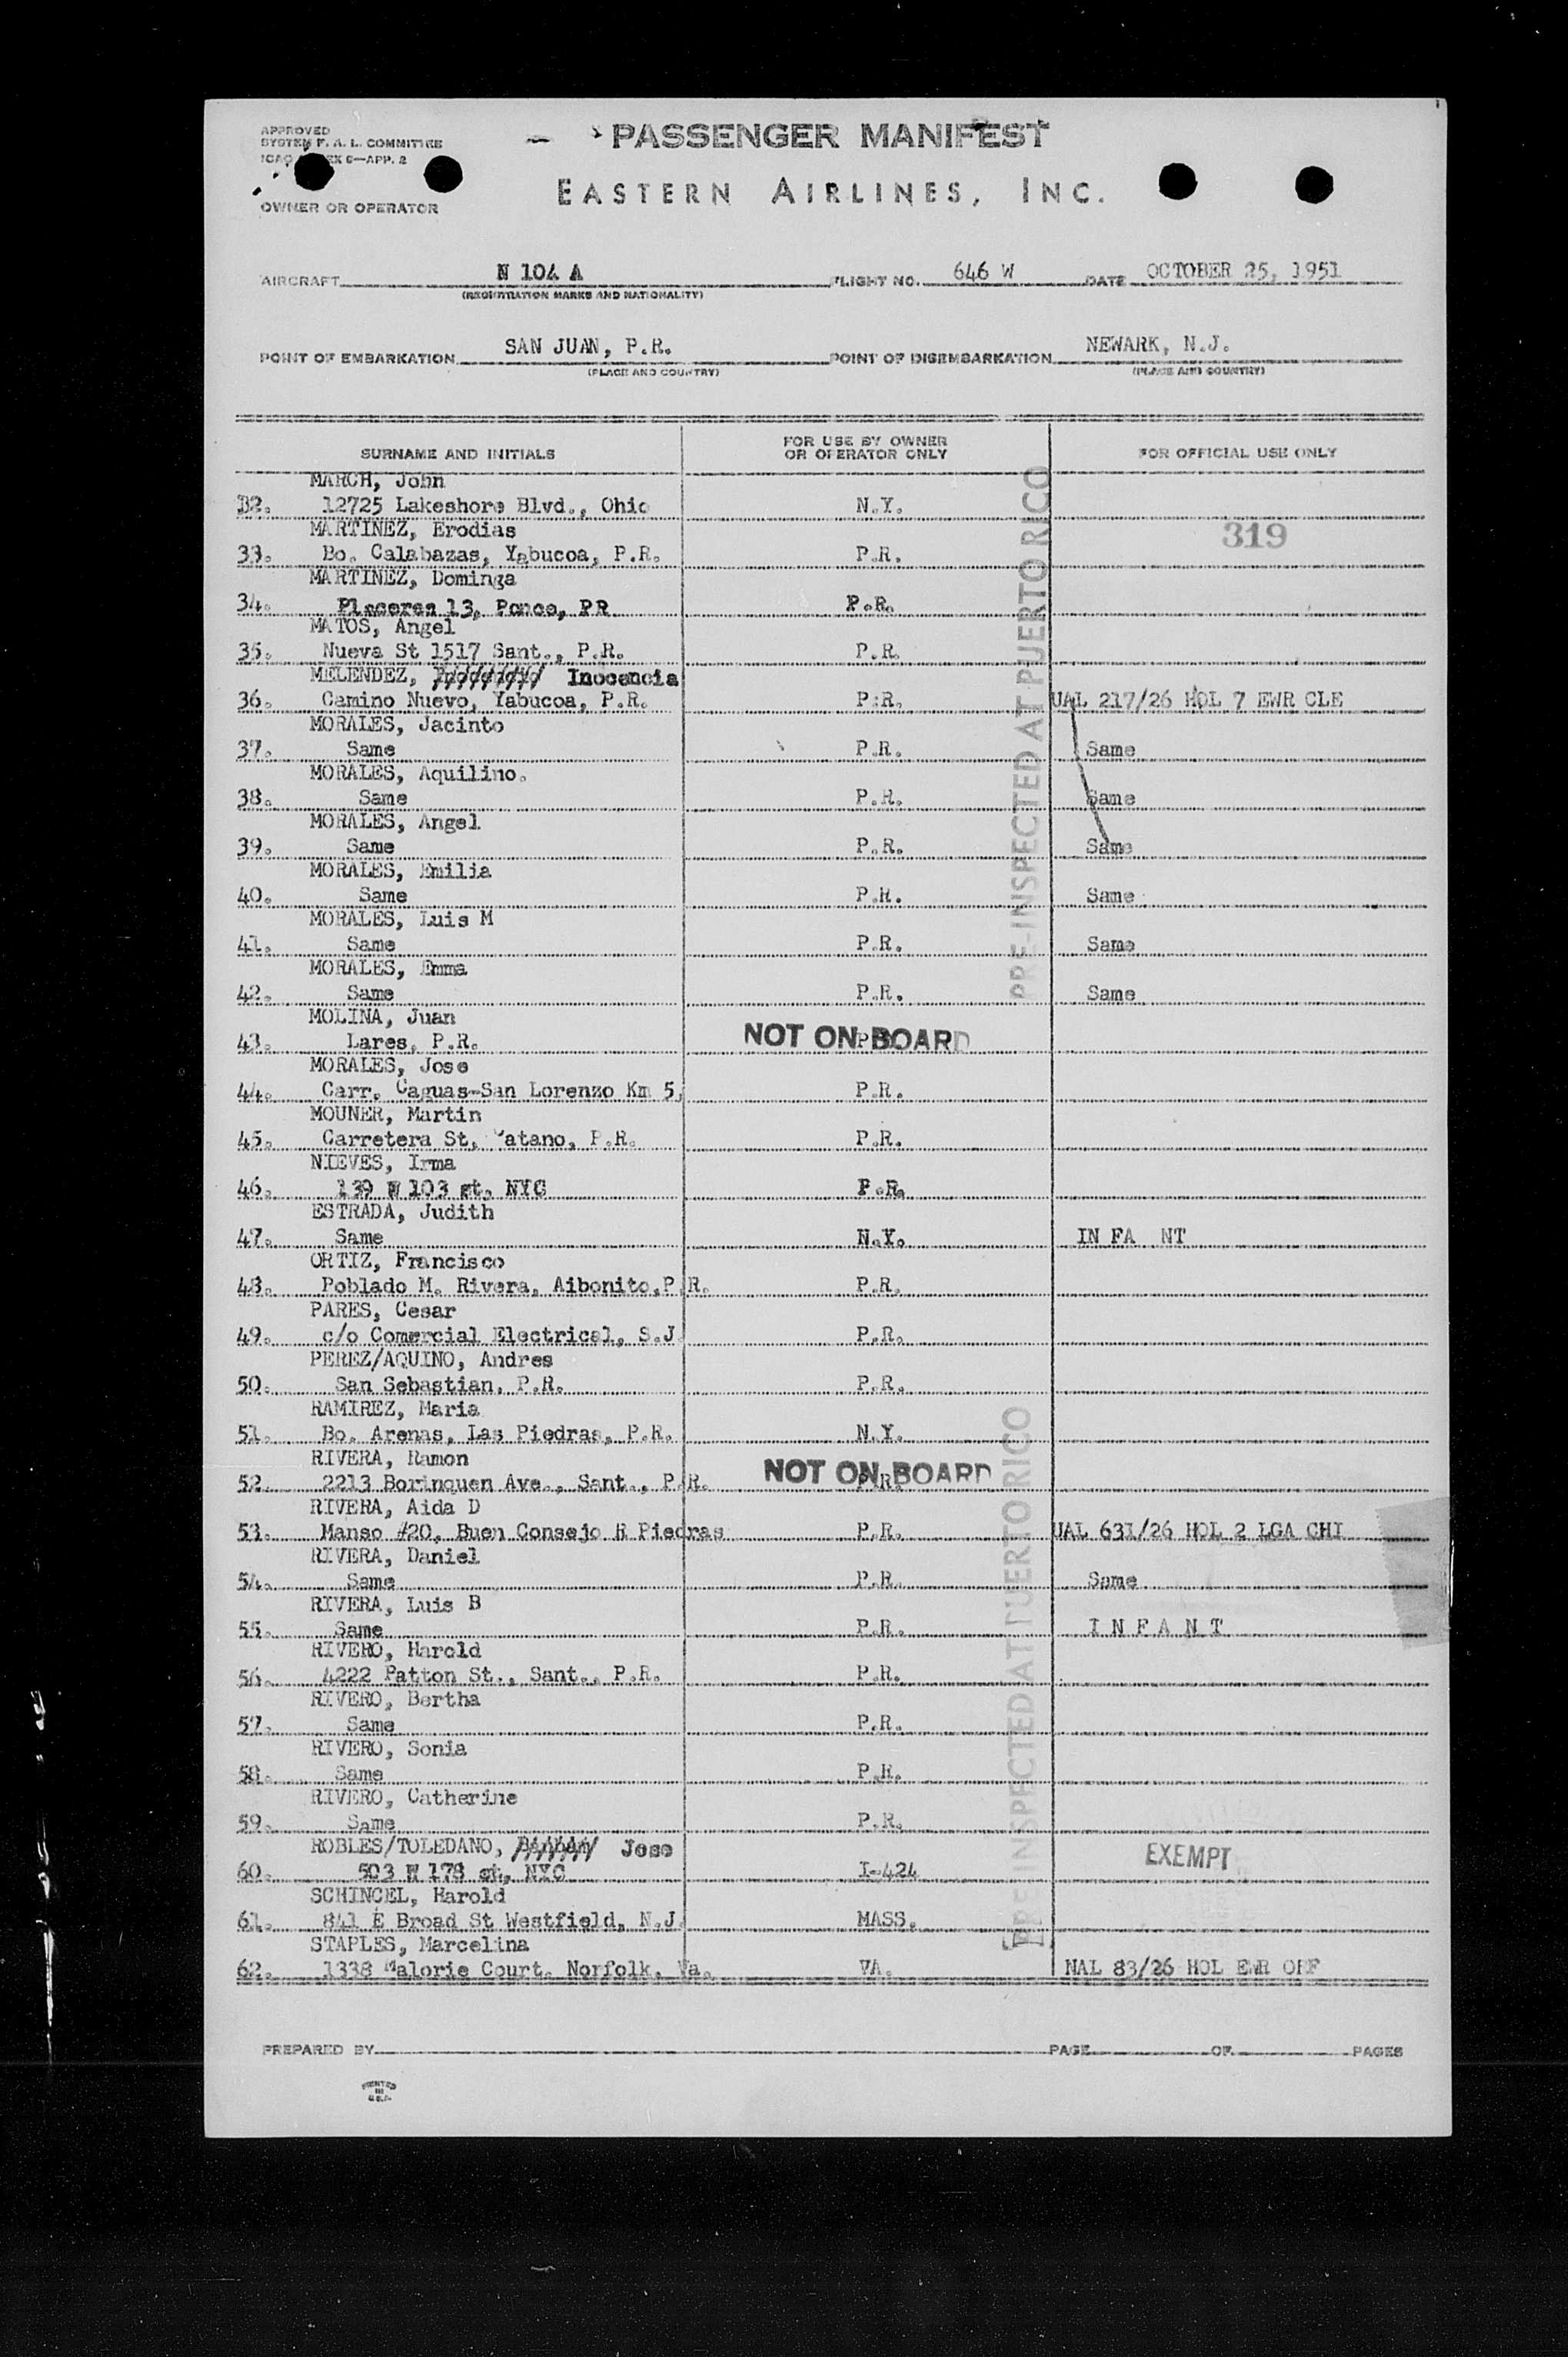 APPROVED
SYSTEM F. A. L. COMMITTEE
EX 6—APP. 2
OWNER OR OPERATOR
PASSENGER MANIFEST
EASTERN AIRLINES, INC.
AIRCRAFT N 104 A FLIGHT NO. 646 W DATE OCTOBER 25, 1951
(REGISTRATION MARKS AND NATIONALITY)
POINT OF EMBARKATION SAN JUAN, P.R. POINT OF DISEMBARKATION NEWARK, N.J.
(PLACE AND COUNTRY) (PLACE AND COUNTRY)
SURNAME AND INITIALS FOR USE BY OWNER OR OPERATOR ONLY FOR OFFICIAL USE ONLY
MARCH, John
32. 12725 Lakeshore Blvd., Ohio N.Y.
319
MARTINEZ, Erodias
33. Bo. Calabazas, Yabucoa, P.R. P.R.
MARTINEZ, Dominga
34. Placeres 13, Ponce, PR P.R.
MATOS, Angel
35. Nueva St 1517 Sant., P.R. P.R.
MELENDEZ, Inocencia
36. Camino Nuevo, Yabucoa, P.R. P.R. UAL 217/26 HOL 7 EWR CLE
MORALES, Jacinto
37. Same P.R. Same
MORALES, Aquilino.
38. Same P.R. Same
MORALES, Angel
39. Same P.R. Same
MORALES, Emilia
40. Same P.R. Same
MORALES, Luis M
41. Same P.R. Same
MORALES, Emma
42. Same P.R. Same
PRE-INSPECTED AT PUERTO RICO
MOLINA, Juan
43. Lares, P.R. NOT ON BOARD
MORALES, Jose
44. Carr. Caguas-San Lorenzo Km 5, P.R.
MOUNER, Martin
45. Carretera St, Catano, P.R. P.R.
NIEVES, Irma
46. 139 W 103 st, NYC P.R.
ESTRADA, Judith
47. Same N.Y. IN FA NT
ORTIZ, Francisco
48. Poblado M. Rivera, Aibonito,P.R. P.R.
PARES, Cesar
49. c/o Comercial Electrical, S.J. P.R.
PEREZ/AQUINO, Andres
50. San Sebastian, P.R. P.R.
RAMIREZ, Maria
51. Bo. Arenas, Las Piedras, P.R. N.Y.
RIVERA, Ramon
52. 2213 Borinquen Ave., Sant., P.R. P.R. NOT ON BOARD
RIVERA, Aida D
53. Manso #20, Buen Consejo R Piedras P.R. UAL 631/26 HOL 2 LGA CHI
RIVERA, Daniel
54. Same P.R. Same
RIVERA, Luis B
55. Same P.R. I N F A N T
RIVERO, Harold
56. 4222 Patton St., Sant., P.R. P.R.
RIVERO, Bertha
57. Same P.R.
RIVERO, Sonia
58. Same P.R.
RIVERO, Catherine
59. Same P.R.
ROBLES/TOLEDANO, Jose
60. 503 W 178 st, NYC I-424 EXEMPT
SCHINCEL, Harold
61. 841 E Broad St Westfield, N.J. MASS.
STAPLES, Marcelina
62. 1338 Malorie Court. Norfolk, Va. VA. NAL 83/26 HOL EWR ORF
PRE-INSPECTED AT PUERTO RICO
PREPARED BY PAGE OF PAGES
PRINTED
IN
U.S.A.